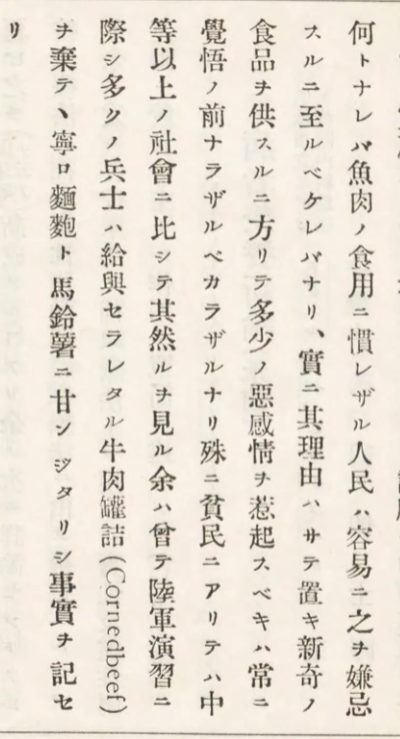 何トナレバ魚肉ノ食用ニ慣レザル人民ハ容易ニ之ヲ嫌忌
スルニ至ルベケレバナリ、實ニ其理由ハサテ置キ新奇ノ
食品ヲ供スルニ方リテ多少ノ惡感情ヲ惹起スベキハ常ニ
覺悟ノ前ナラザルベカラザルナリ殊ニ貧民ニアリテハ中
等以上ノ社會ニ比シテ其然ルヲ見ル余ハ曾テ陸軍演習ニ
際シ多クノ兵士ハ給與セラレタル牛肉罐詰(Cornedbeef)
ヲ棄テヽ寧ロ麵麭ト馬鈴薯ニ甘ンジタリシ事實ヲ記セ
リ